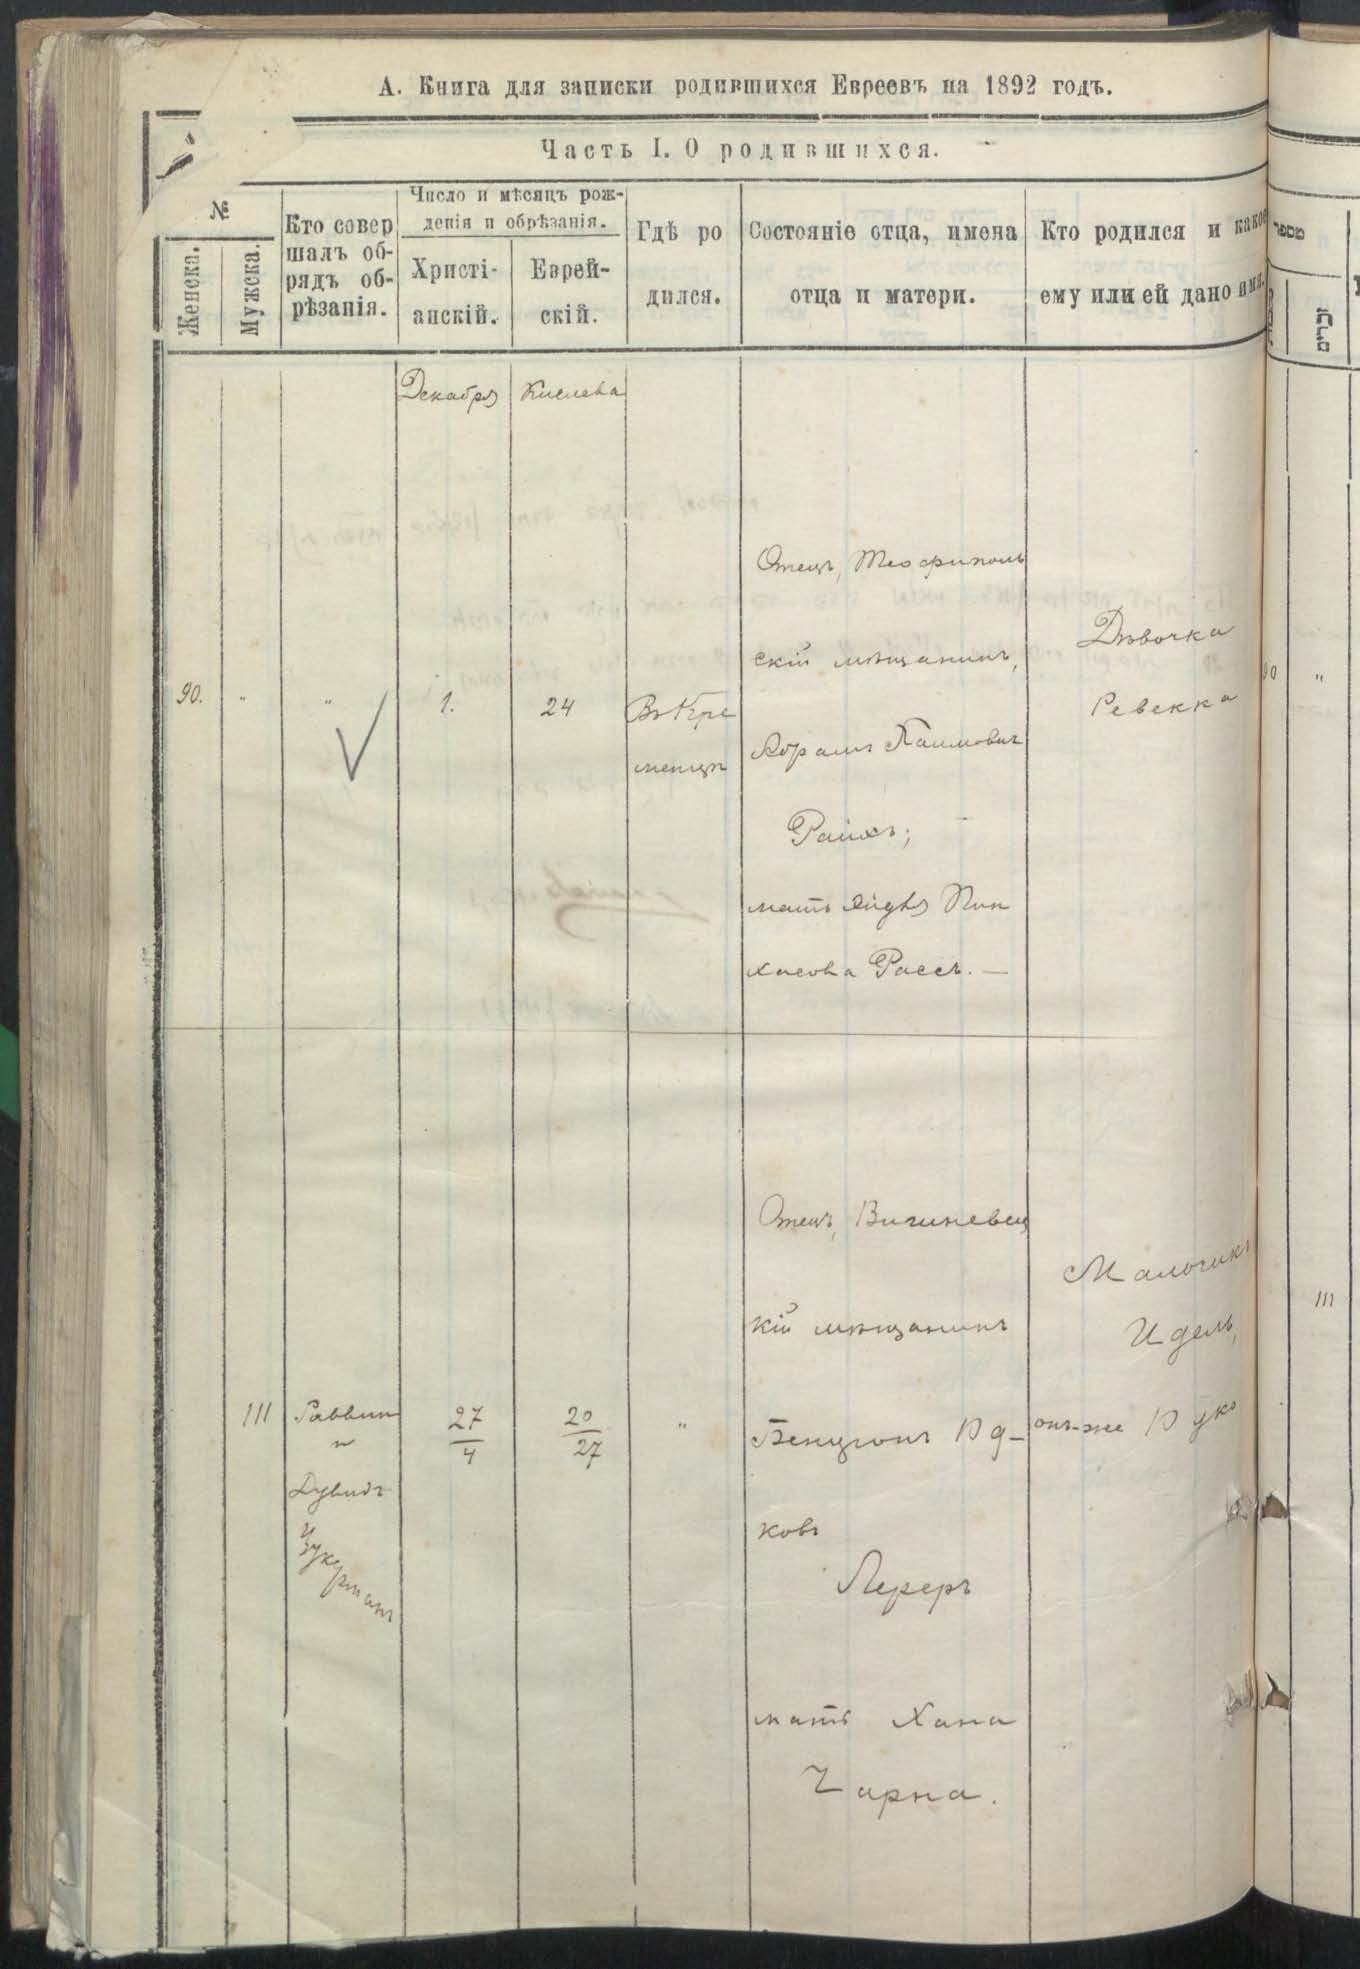 А. Книга для записки родившихся Евреевъ на 1892 годъ.
Часть I. О родившихся.
№
Женска.
Мужска.
Кто совер
шалъ об-
рядъ об-
рѣзанія.
Число и мѣсяцъ рож-
денія и обрѣзанія.
Христі-
анскій.
Еврей-
скій.
Гдѣ ро
дился.
Состояніе отца, имена
отца и матери.
Кто родился и какое
ему или ей дано имя.
מספר
זכרים
Декабря
Кислева
90.
"
"
1.
24
Въ Кре
менцѣ
Отецъ, Теофиполь
скій мѣщанинъ,
Абрамъ Хаимовичъ
Райхъ;
мать Пин
хасова Рассъ. —
Дѣвочка
Ревекка
90
"
111
Раввин
ъ
Дувидъ
Цукерманъ
27
4
20
27
"
Отецъ,
кій мѣщанинъ
Бенционъ Юд-
ковъ
Лереръ
мать Хана
Чарна.
Мальчикъ
Идель,
онъ-же Юдко
111